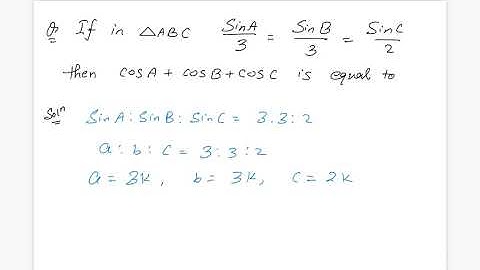 Q If in △ABC SinA/3 = SinB/3 = SinC/2
then cosA + cosB + cosC is equal to
Solⁿ SinA : SinB : SinC = 3 : 3 : 2
a : b : c = 3 : 3 : 2
a = 3k, b = 3k, c = 2k